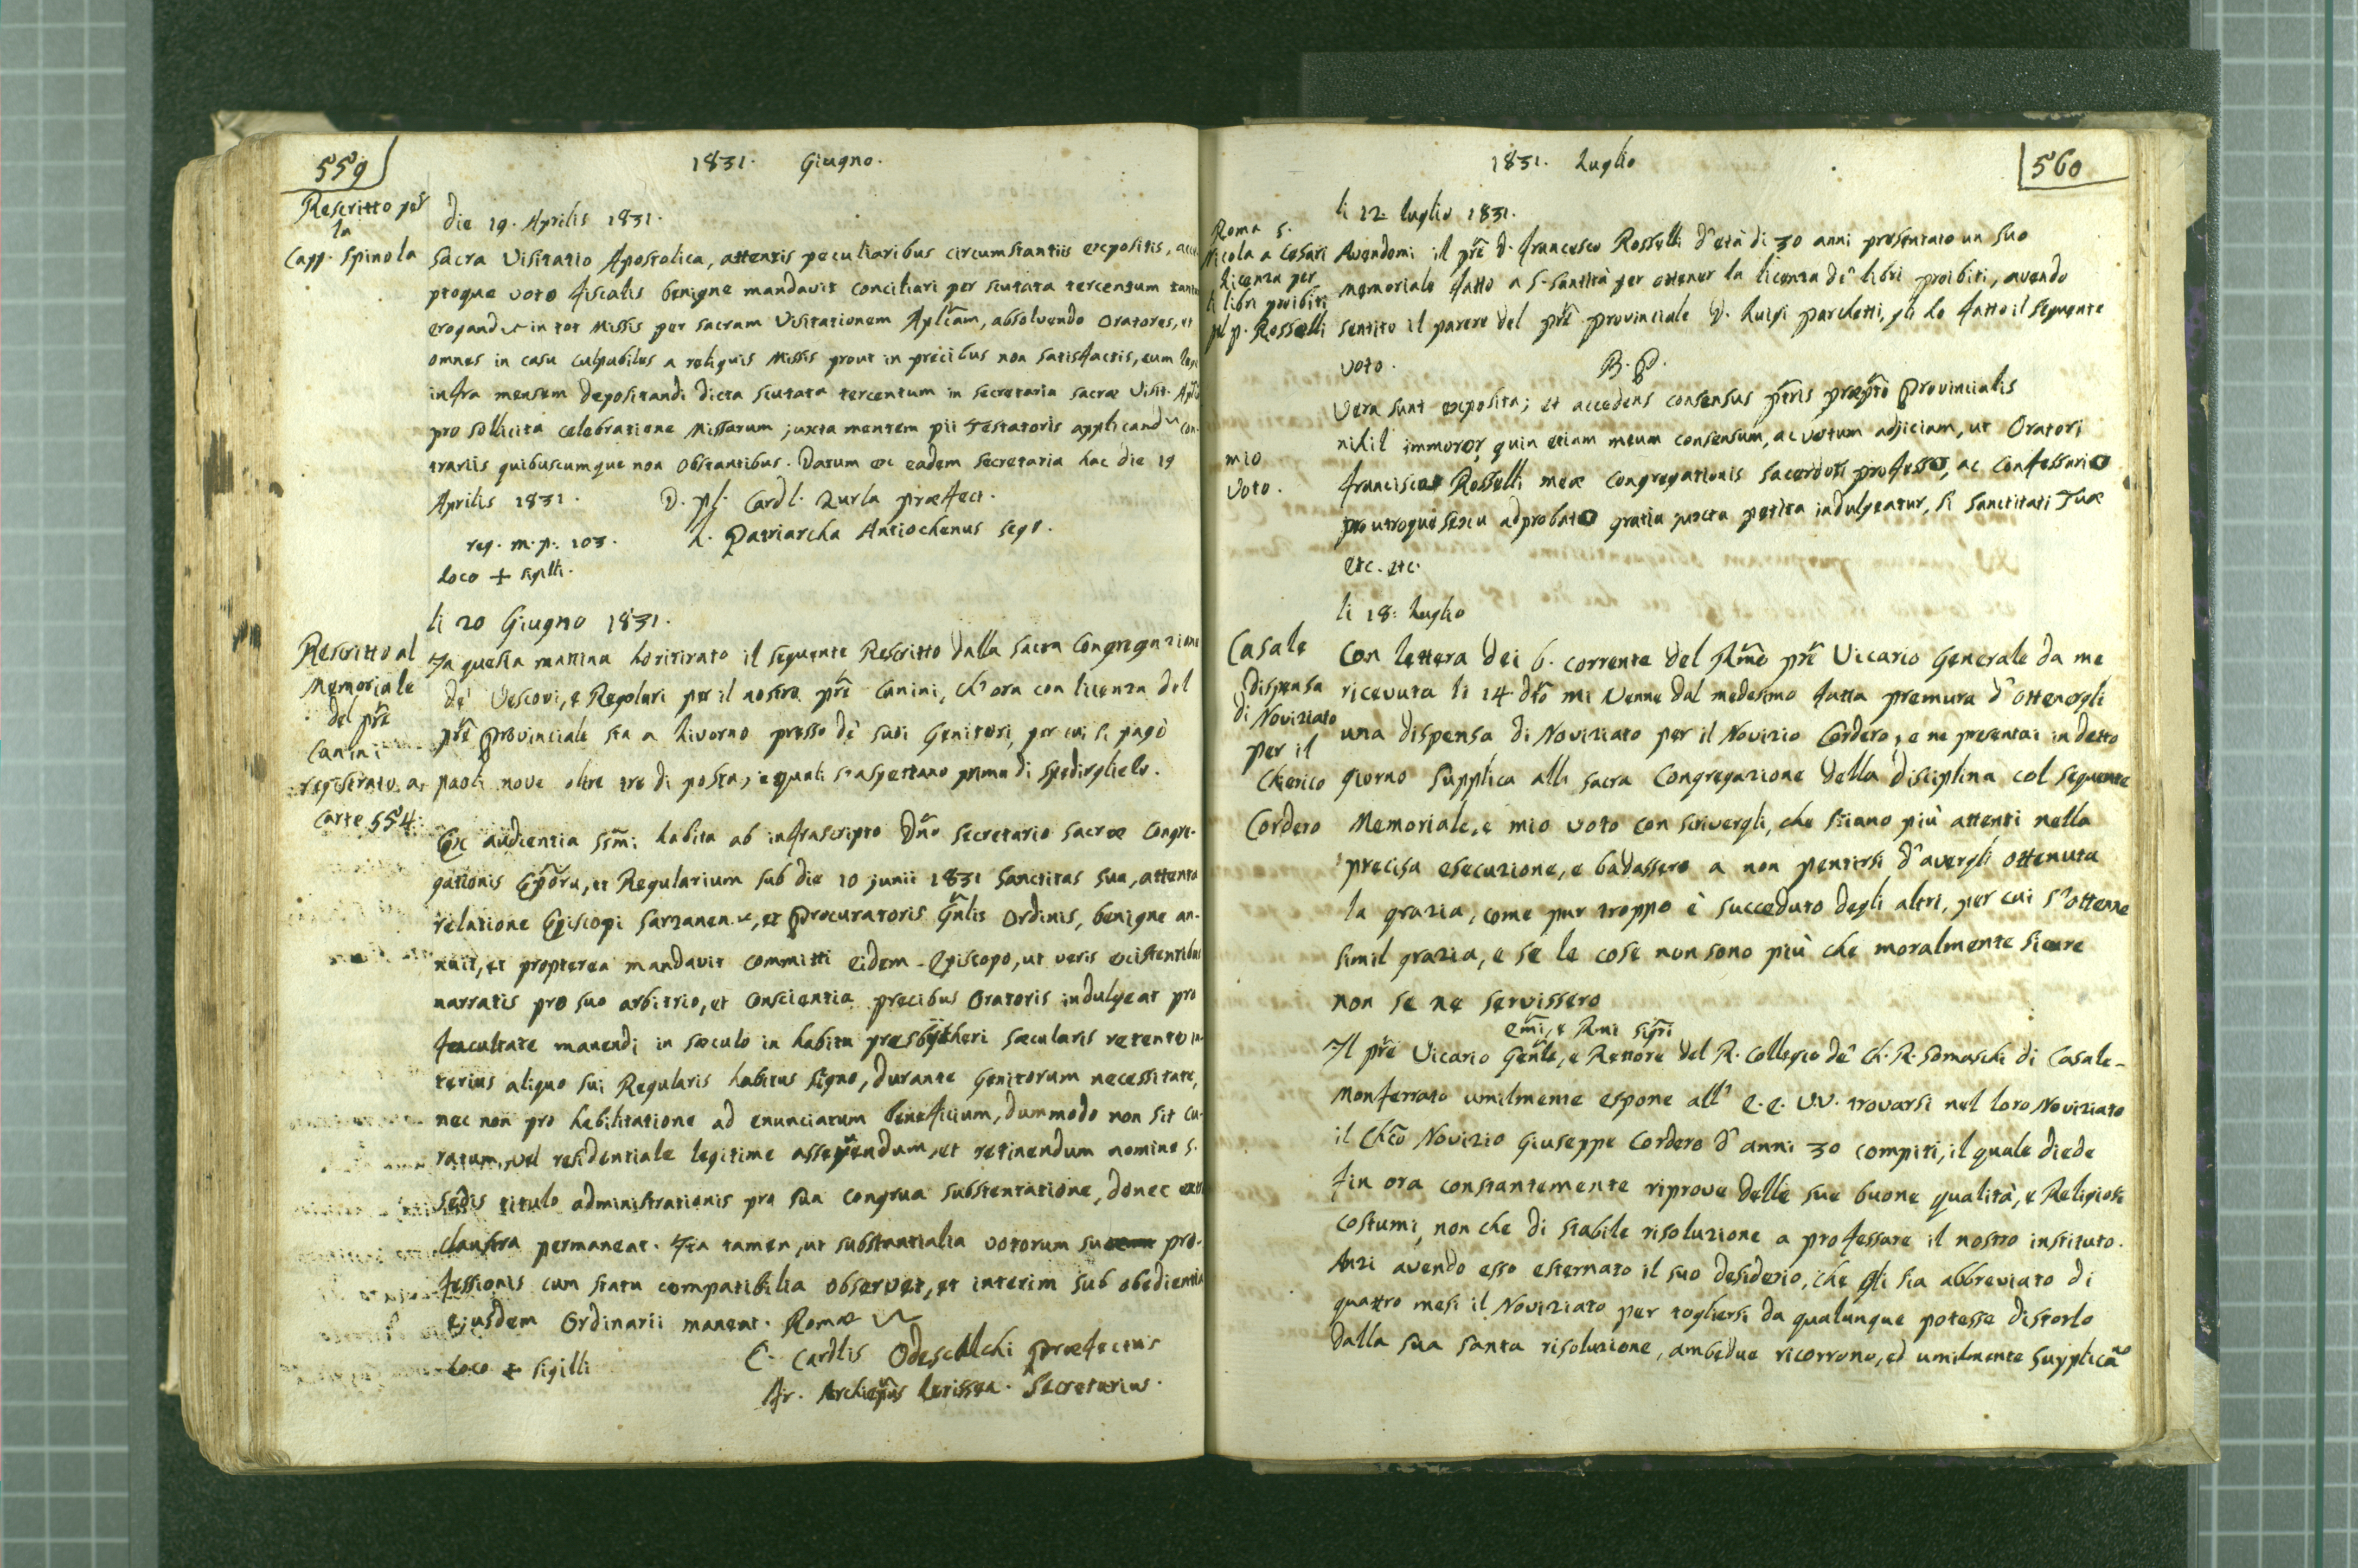 559
1831. Giugno.
Rescritto per
la
Capp. Spinola
die 19. Aprilis 1831.
Sacra Visitatio Apostolica, attentis peculiaribus circumstantiis expositis, acce
ptoque voto fiscalis benigne mandavit conciliari per scutata tercentum tantu
erogand in tot Missis per sacram Visitationem Aplicam, absolvendo Oratores, et
omnes in casu culpabiles a reliquis Missis prout in precibus non satisfactis, cum lege
infra mensem depositandi dicta scutata tercentum in secretaria sacræ Visit. Aplicæ
pro sollicita celebratione Missarum juxta mentem pii Testatoris applicand con-
trariis quibuscumque non obstantibus. Datum ex eadem secretaria hac die 19
Aprilis 1831. D. pl. Cardl. Zurla præfect.
reg. m. p. 103. L. Patriarcha Antiochenus seg.
Loco + sigilli.
li 20 Giugno 1831.
Rescritto al
Memoriale
del prē
Canini
registrato a
carte 554.
In questa mattina ho ritirato il seguente Rescritto dalla Sacra Congregazione
de' Vescovi, e Regolari per il nostro prē Canini, ch'ora con licenza del
prē Provinciale sta a Livorno presso de' suoi Genitori, per cui si pagò
paoli nove oltre tre di posta, e quali s'aspettano prima di spedirglielo.
Ex audientia SSmi habita ab infrascripto Dno Secretario sacræ Congre-
gationis Epõru, et Regularium sub die 10 junii 1831 Sanctitas sua, attenta
relatione Episcopi Sarzanen, et Procuratoris Gnlis Ordinis, benigne an-
nuit, et propterea mandavit committi eidem Episcopo, ut veris existentibus
narratis pro suo arbitrio, et conscientia precibus Oratoris indulgeat pro
facultate manendi in sæculo in habitu presbytheri sæcularis retento in-
terius aliquo sui Regularis habitus signo, durante Genitorum necessitate,
nec non pro habilitatione ad enunciatum beneficium, dummodo non sit cu-
ratum, vel residentiale legitime assequendum, et retinendum nomine S.
Sedis titulo administrationis pro sua congrua substentatione, donec extra
claustra permaneat. Ita tamen, ut substantialia votorum suæ pro-
fessionis cum statu compatibilia observet, et interim sub obedientia
ejusdem Ordinarii maneat. Romæ
Loco + sigilli C. Cardlis Odescalchi Præfectus
Ar. Archiepũs Larissen. Secretarius.
560
1831. Luglio
li 12 luglio 1831.
Roma S.
Nicola a Cesari
Licenza per
li libri proibiti
pel p. Rosselli
Avendomi il prē d. Francesco Rosselli d'età di 30 anni presentato un suo
memoriale fatto a S. Santità per ottener la licenza de' libri proibiti, avendo
sentito il parere del prē Provinciale D. Luigi Parchetti, gli ho fatto il seguente
voto. B. P.
mio
voto.
Vera sunt exposita; et accedens consensus ptris præpti Provincialis
nihil immoror, quin etiam meum consensum, ac votum adjiciam, ut Oratori
Francisco Rosselli meæ Congregationis Sacerdoti professo, ac Confessario
pro utroque sexu adprobato gratia juxta petita indulgeatur, si Sanctitati Tuæ
etc. etc.
li 18. Luglio
Casale
Dispensa
di Noviziato
per il
Chierico
Cordero
Con lettera dei 6. corrente del Rmo prē Vicario Generale da me
ricevuta li 14 dto mi venne dal medesimo fatta premura d'ottenergli
una dispensa di Noviziato per il Novizio Cordero, e ne presentai in detto
giorno supplica alla Sacra Congregazione della disciplina col seguente
Memoriale, e mio voto con scrivergli, che stiano più attenti nella
precisa esecuzione, e badassero a non pentirsi d'avergli ottenuta
la grazia, come pur troppo è succeduto degli altri, per cui s'ottenne
simil grazia, e se le cose non sono più che moralmente sicure
non se ne servissero
Emi, e Rmi Sigri
Il prē Vicario Genle, e Rettore del R. Collegio de' Ch. R. Somaschi di Casale-
Monferrato umilmente espone all' E.E. V.V. trovarsi nel loro Noviziato
il Chco Novizio Giuseppe Cordero d'anni 30 compiti, il quale diede
fin ora constantemente riprove delle sue buone qualità, e Religiosi
costumi, non che di stabile risoluzione a professare il nostro instituto.
Anzi avendo esso esternato il suo desiderio, che gli sia abbreviato di
quattro mesi il Noviziato per togliersi da qualunque potesse distorlo
dalla sua santa risoluzione, ambedue ricorrono, ed umilmente supplicano